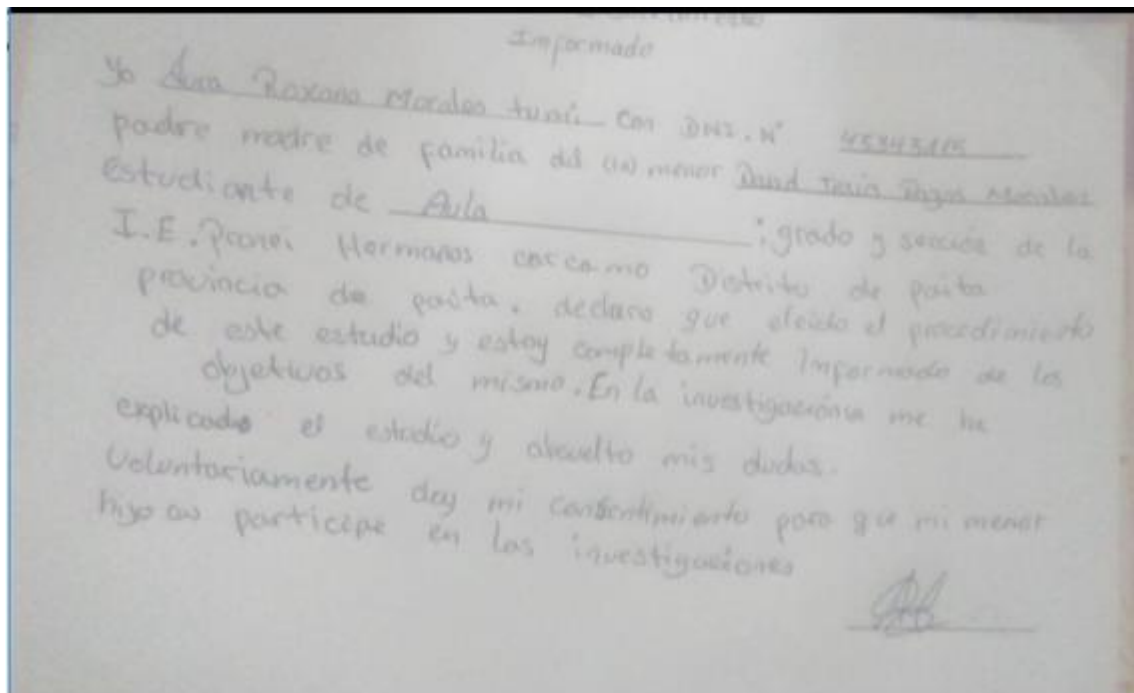 Informado
Yo Roxana Morales tunú con DNI. N°
padre madre de familia dá (a) menor Morales
estudiante de Aula ; grado y sección de la
I.E. Pronoi Hermanos carcamo Distrito de paita
provincia de paita, declaro que eleido el procedimiento
de este estudio y estoy completamente Informado de los
objetivos del mismo. En la me he
explicado el estudio y absuelto mis dudas.
Voluntariamente doy mi consentimiento para que mi menor
hijo participe en las investigaciones